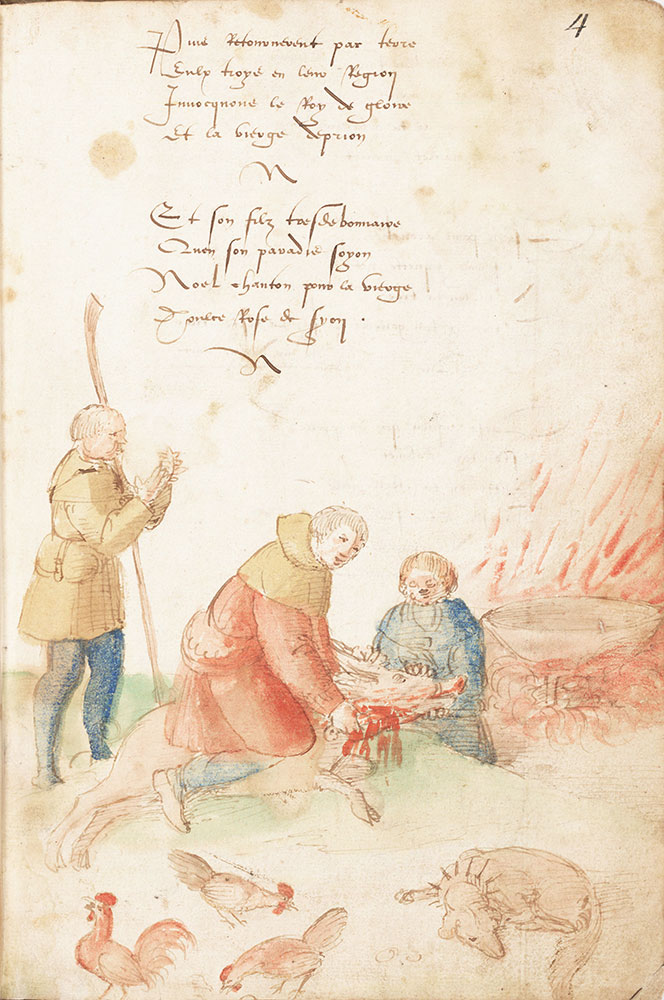 4
Puis Retournerent par terre
Eulx troys en leur Region
Invocquons le Roy de gloire
Et la vierge de prion
Et son filz tresdebonnaire
Quen son paradis soyon
Noel chanton pour la vierge
Doulce Rose de Syon .